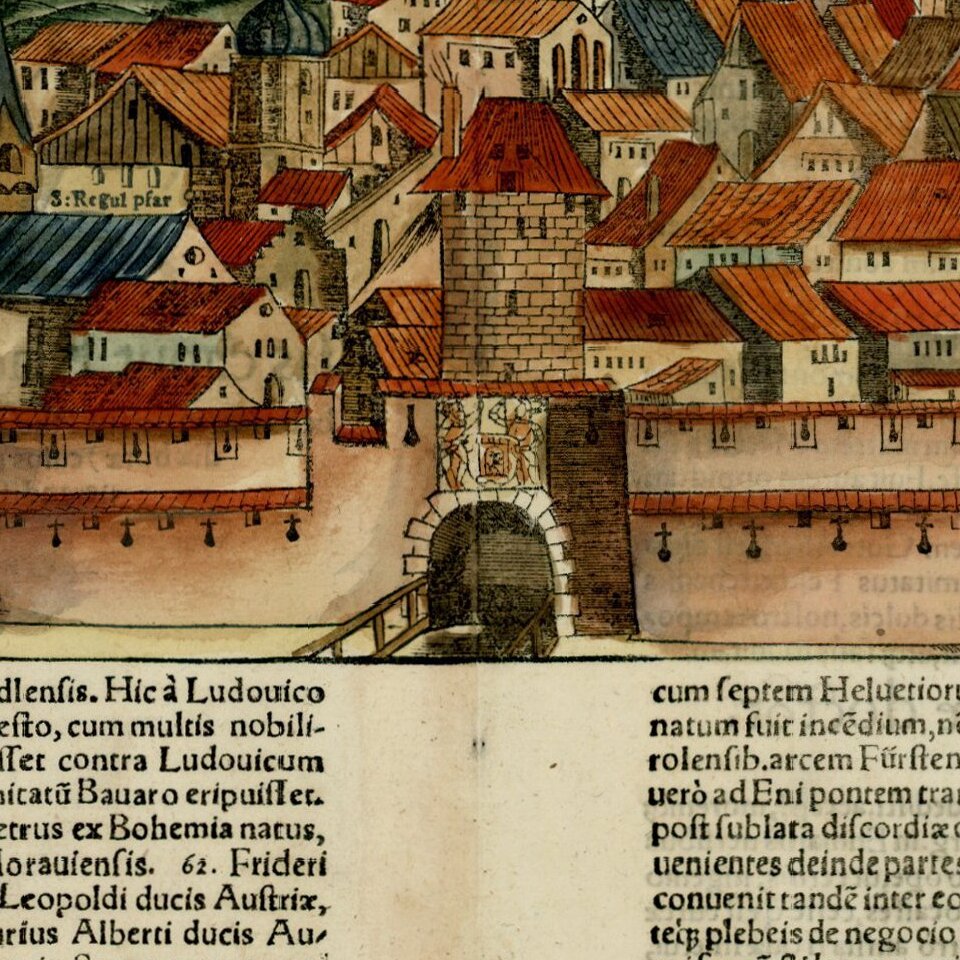 S: Regul pfar
dlensis. Hic à Ludouico
esto, cum multis nobili-
sset contra Ludouicum
nitatū Bauaro eripuisset.
etrus ex Bohemia natus,
Morauiensis. 62. Frideri
Leopoldi ducis Austriæ,
arius Alberti ducis Au-
cum septem Heluetioru
natum fuit incēdium, nē
rolensib. arcem Fürsten
uerò ad Eni pontem tran
post sublata discordiæ
uenientes deinde partes
conuenit tandē inter eo
teq́ꝫ plebeis de negocio